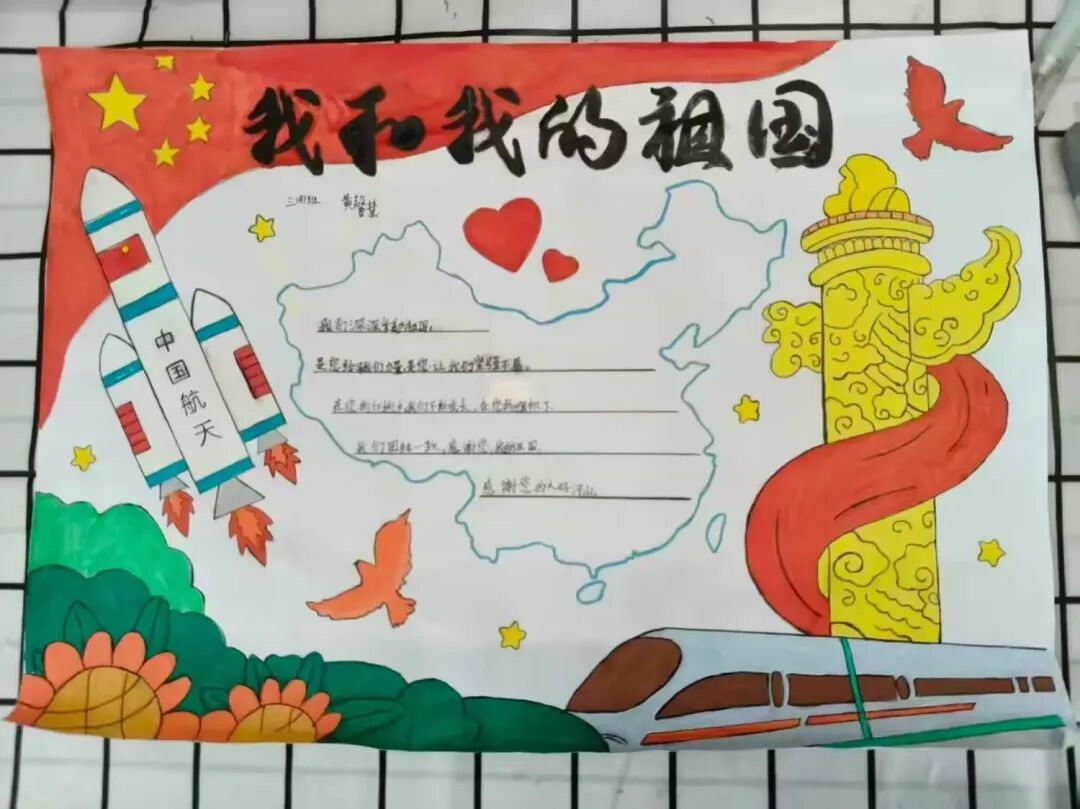 我和我的祖国
黄
中国航天
我们深深祖国
是您给我们力量,是您让我们坚强不屈。
在您的怀抱中我们不断成长,在您的旗帜下
我们团结一致,感谢您,我的祖国
感谢您的大好河山